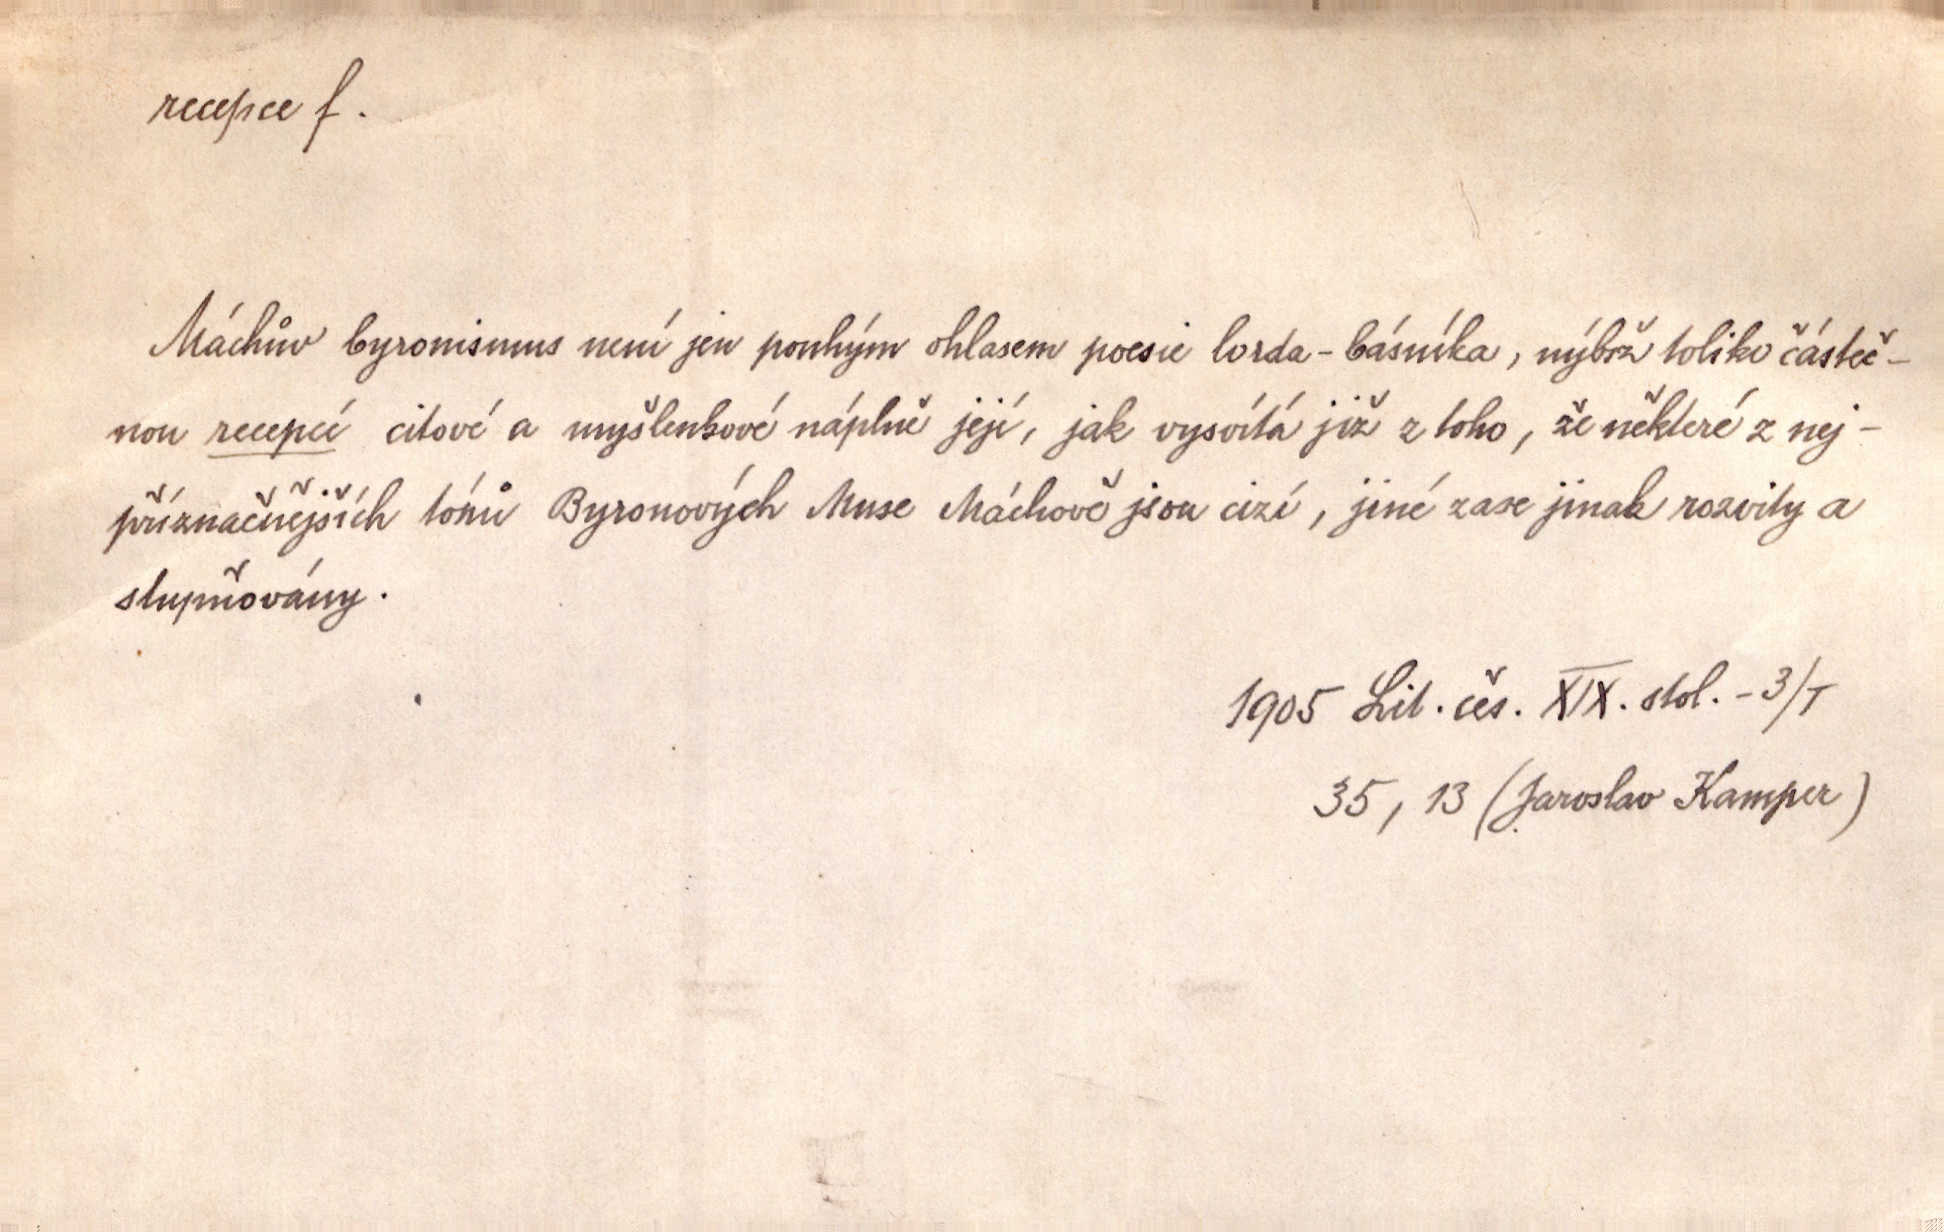 recepce f.
Máchův byronismus není jen pouhým ohlasem poesie lorda-básníka, nýbrž toliko částeč-
nou recepcí citové a myšlenkové náplně její, jak vysvítá již z toho, že některé z nej-
příznačnějších tónů Byronových Muse Máchově jsou cizí, jiné zase jinak rozvity a
stupňovány.
1905 Lit. čes. XIX. stol. - 3/I
35, 13 (Jaroslav Kamper)